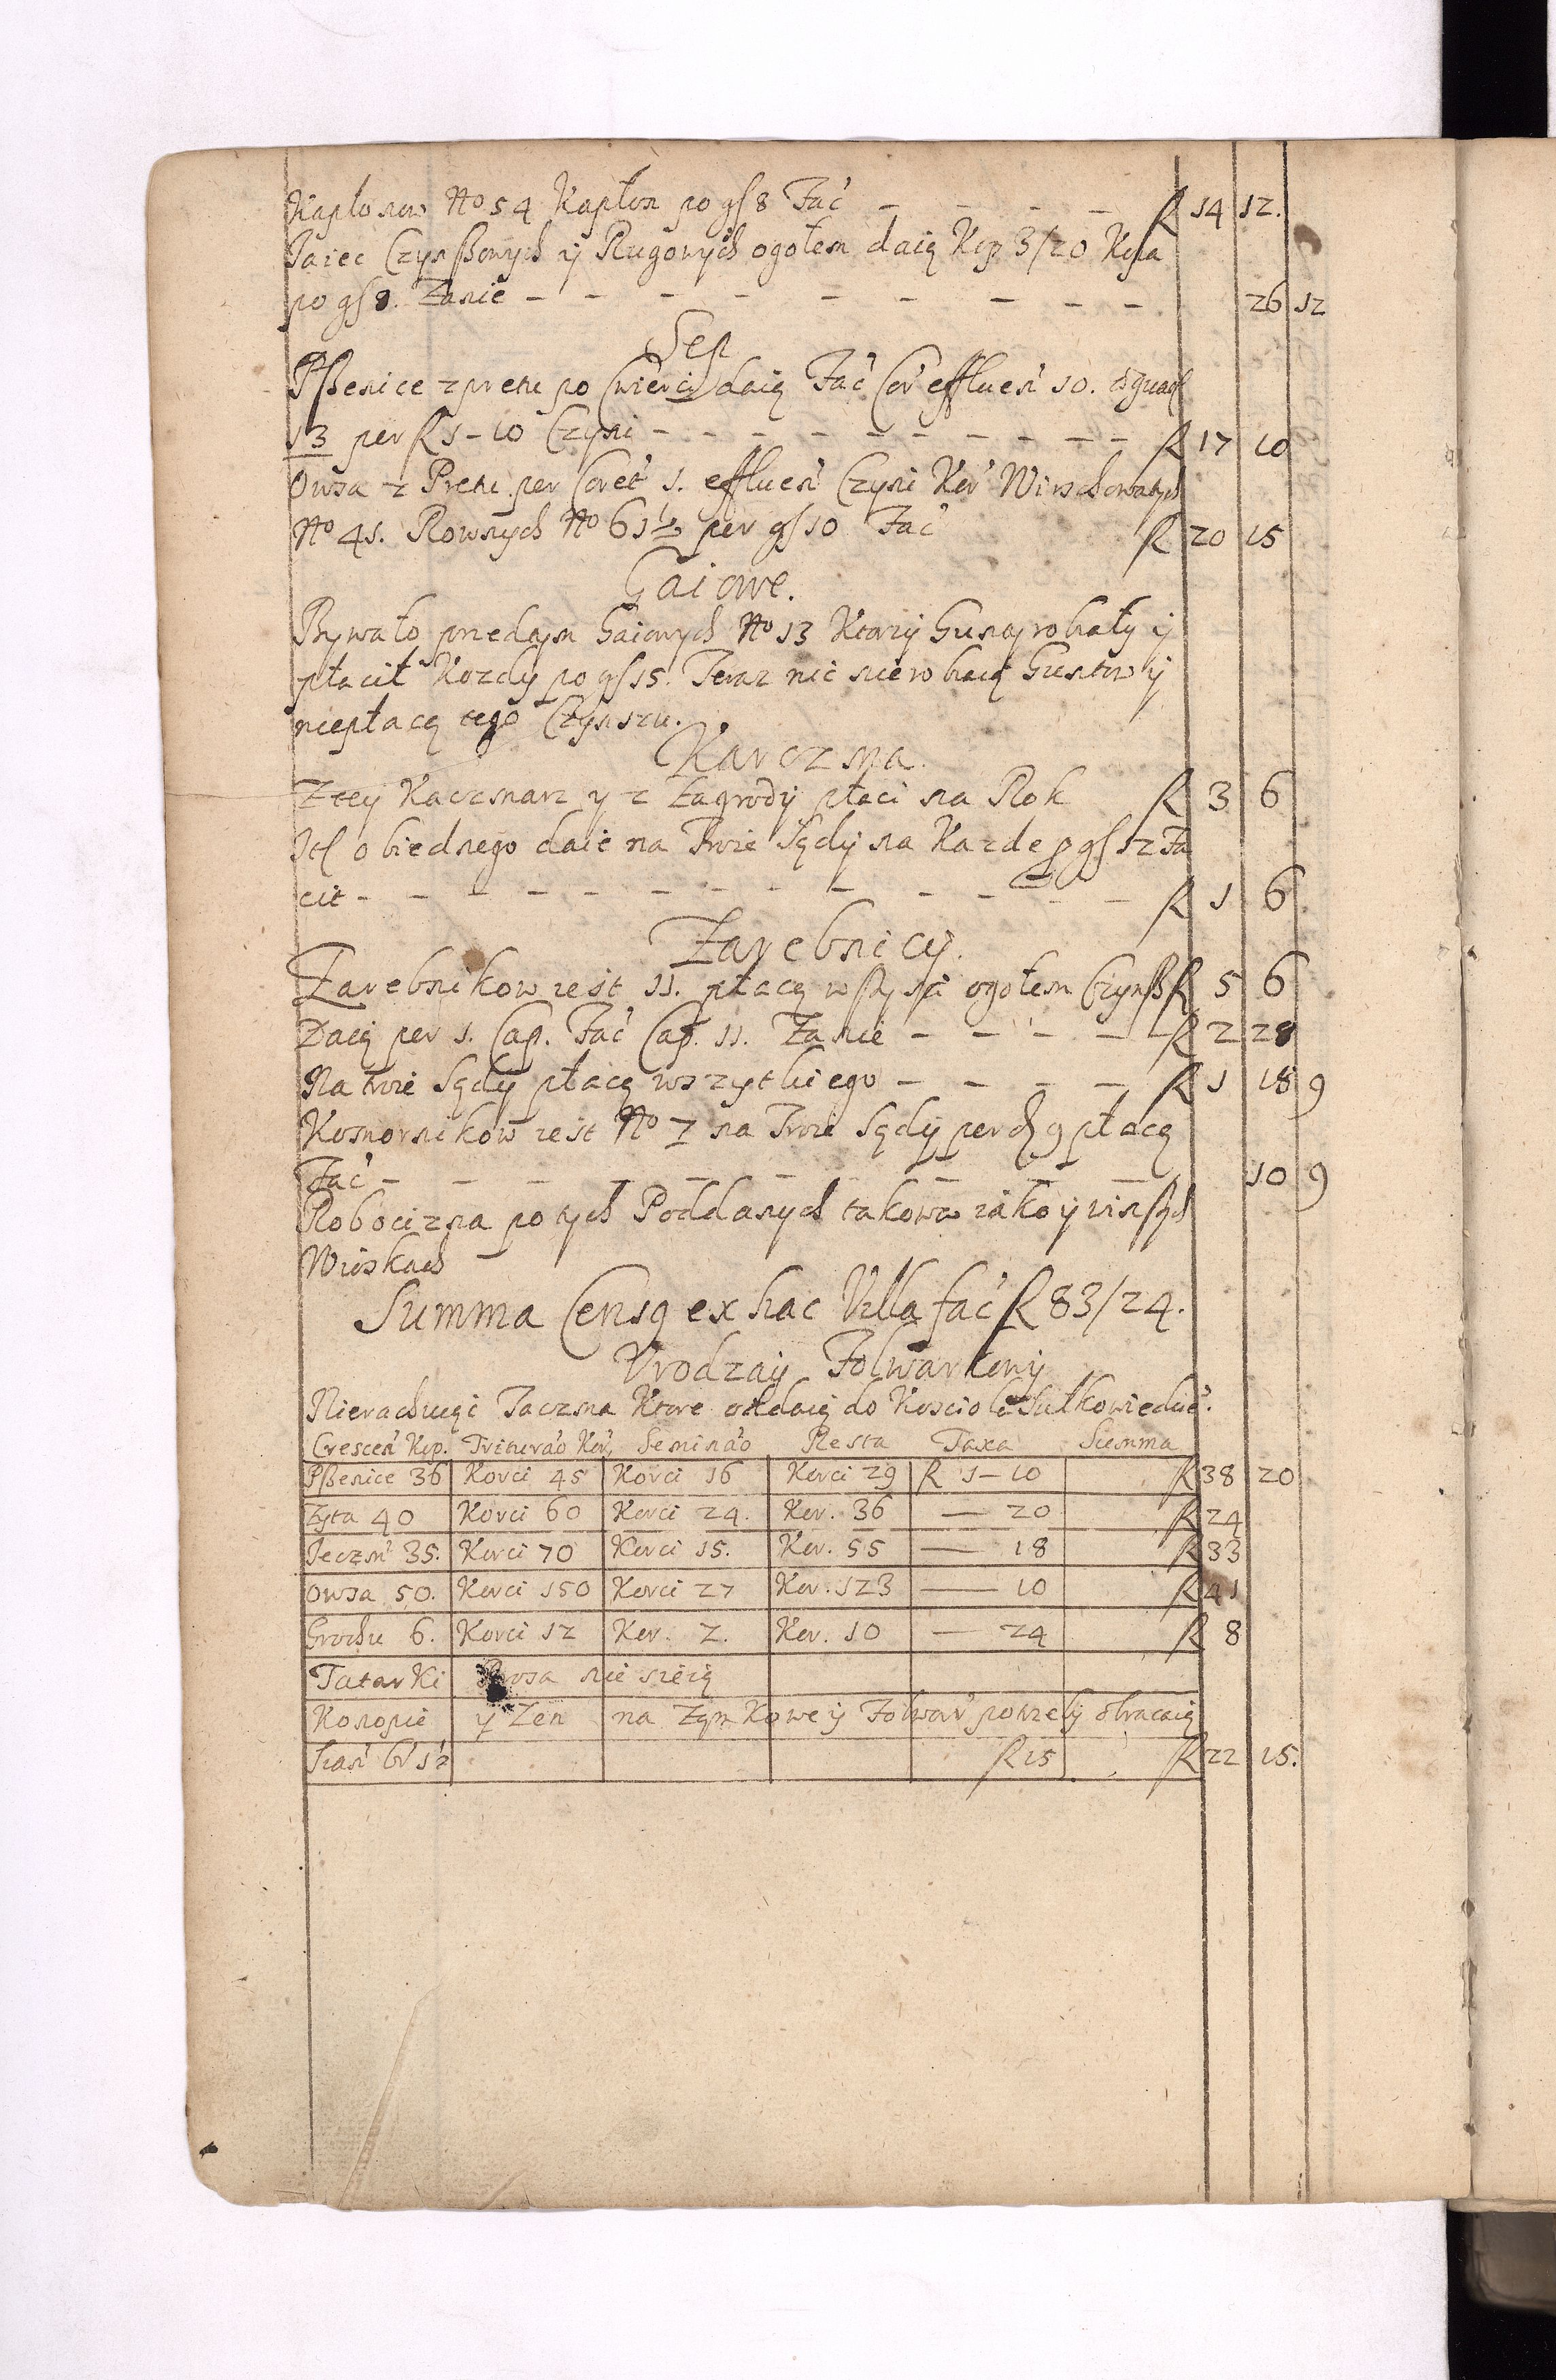 Kapłonow No 54 Kapłon po gſ 8 Fac̃ – – – – R 14 12.
Jaiec Czynßowych ÿ Rugowych ogołem daią Kop 3/20 Kopa
po gſ 8. Zanie – – – – – – – – – 26 12
Sep
Pßenice z pretu po Cwierci daią Fac̃ Cor̃ effluen̄ 10. æquat
13 per R 1–10 Czyni – – – – – – – – – R 17 10
Owsa z Pretu per Coret̃ 1. effluen̄ Czyni Kor̃ Wirzchowatych
No 41. Rownych No 61½ per gſ 10 Fac̃ R 20 15
Gaiowe.
Bywało przedtym Gaiowych No 13 Ktorzy Gunaj robiały ÿ
płacił Kozdy po gſ 15. Teraz nic nie robią Guntow ÿ
niepłacą tego Czynszu.
Karczma.
Z tey Kaczmarz y z Zagrody płaci na Rok R 3 6
It̃ obiednego daie na Troie Sądy na Kazde p gſ 12 Fa
cit – – – – – – – – – – R 1 6
Zarebnicy.
Zarebnikow iest 11. płacą wßyſci ogołem Czynß R 5 6
Daią per 1. Cap. Fac̃ Cap. 11. Zanie – – – – R 2 28
Na troie Sądy płacą wszytkiego – – – – R 1 18 9
Komornikow iest No 7 na Troie Sądy per ₰ 9 płacą
Fac̃ – – – – – – – – – 10 9
Robocizna po tych Poddanych takowa iako y w inſzych
Wioskach
Summa Censq ex hac Villa fac̃ R 83/24.
Vrodzay Folwarkowy
Nierachuiąc Taczma Ktore oddaią do Kosciola Sułkowiedue.
Crescen̄ Kop. Triturão Kor̃, Seminão Resta Taxa Summa
Pßenice 36 Korci 45 Korci 16 Korci 29 R 1–10 R 38 20
Zyta 40 Korci 60 Korci 24. Kor. 36 — 20 R 24
Jeczm̃ 35. Korci 70 Korci 15. Kor. 55 — 18 R 33
Owsa 50. Korci 150 Korci 27 Kor. 123 — 10 R 41
Grochu 6. Korci 12 Kor. 2. Kor. 10 — 24 R 8
Tatarki Prosa nie sieią
Konopie y Len na Zgrz Kowe ÿ Folwar̃ potrzeby obracaią
Sian̄ br̃ 1½ R 15 R 22 15.